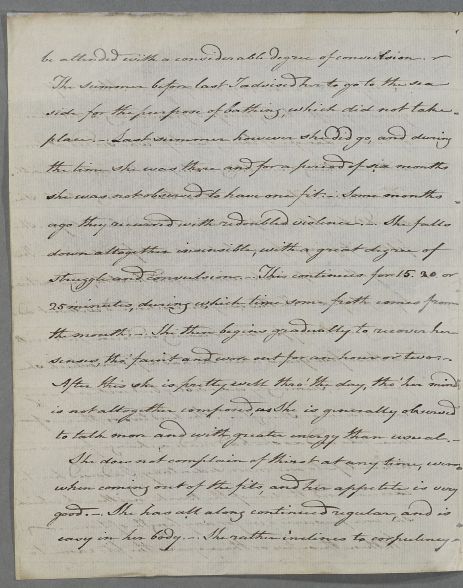 be attended with a considerable degree of convulsion. -
The summer before last I advised her to go to the sea
side for the purpose of bathing, which did not take
place. - Last summer however she did go, and during
the time she was there and for a period of six months
she was not observed to have one fit. - Some months
ago they recurred with redoubled violence. - She falls
down altogether insensible, with a great degree of
struggle and convulsion. - This continues for 15. 20 or
25 minutes, during which time some froth comes from
the mouth. - She then begins gradually to recover her
senses, tho' faint and worn out for an hour or two. -
After this she is pretty well thro' the day, tho' her mind
is not altogether composed, as She is generally observed
to talk more and with greater energy than usual. -
She does not complain of thirst at any time, even
when coming out of the fits, and her appetite is very
good. - She has all along continued regular, and is
easy in her body. - She rather inclines to corpulency -